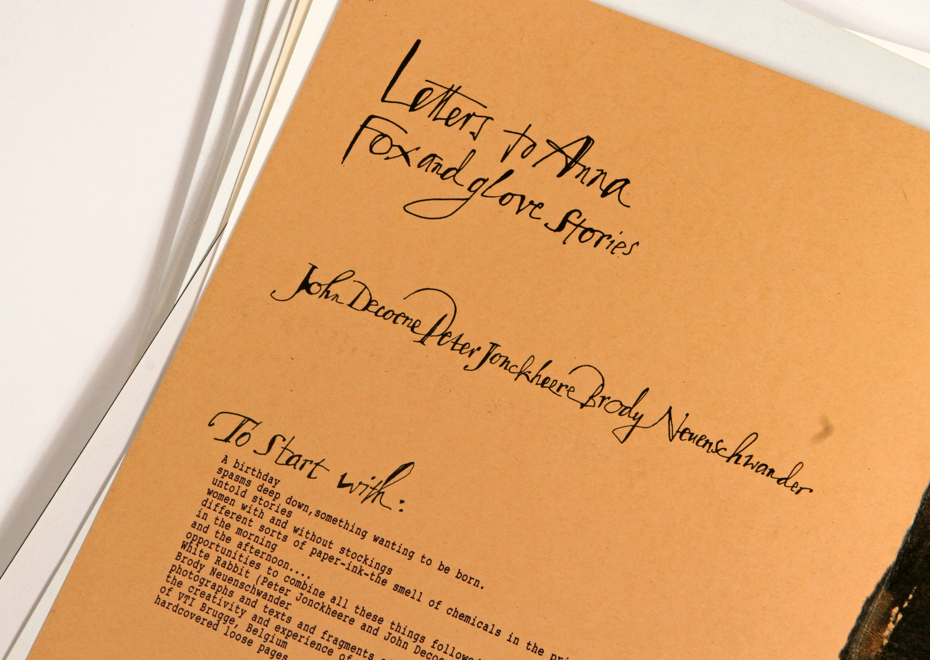 Letters to Anna
Fox and glove Stories
John Decoene Peter Jonckheere Brody Neuenschwander
To Start with:
A birthday
spasms deep down,something wanting to be born.
untold stories
women with and without stockings
different sorts of paper-ink-the smell of chemicals in the
in the morning
and the afternoon....
opportunities to combine all these things
White Rabbit (Peter Jonckheere and John
Brody Neuenschwander
photographs and texts and fragments
the creativity and experience of
of VTI Brugge, Belgium
hardcovered loose pages